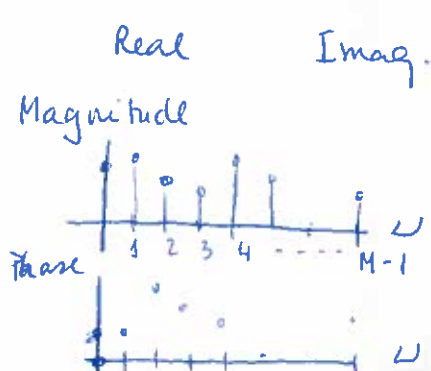 Real Imag.
Magnitude
1 2 3 4 ----- M-1 U
Phase
U